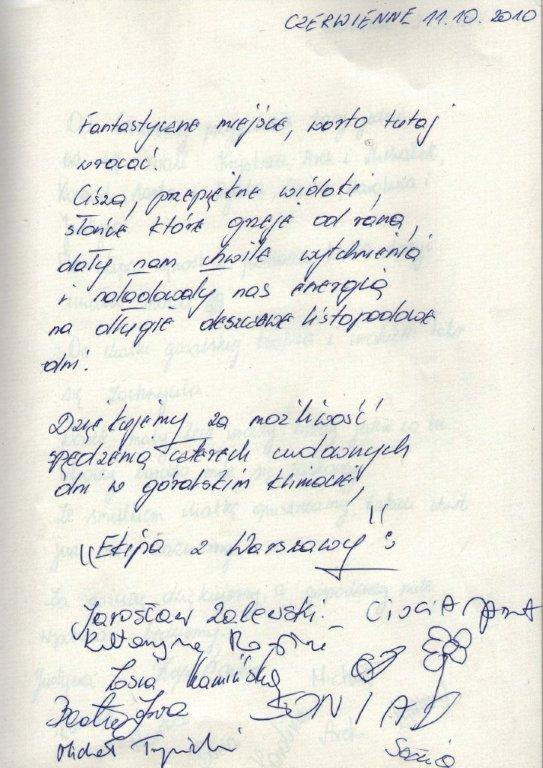 CZERWIENNE 11.10.2010
Fantastyczne miejsce, warto tutaj
wracać
Cisza, przepiękne widoki,
słońce które grzeje od rana,
dały nam chwilę wytchnienia
i naładowały nas energią
na długie deszczowe listopadowe
dni.
Dziękujemy za możliwość
spędzenia czterech cudownych
dni w góralskim klimacie!
"Ekipa z Warszawy":
Jarosław Zalewski
Katarzyna
Zosia Kamińska
SONIA
Michał
Sonia